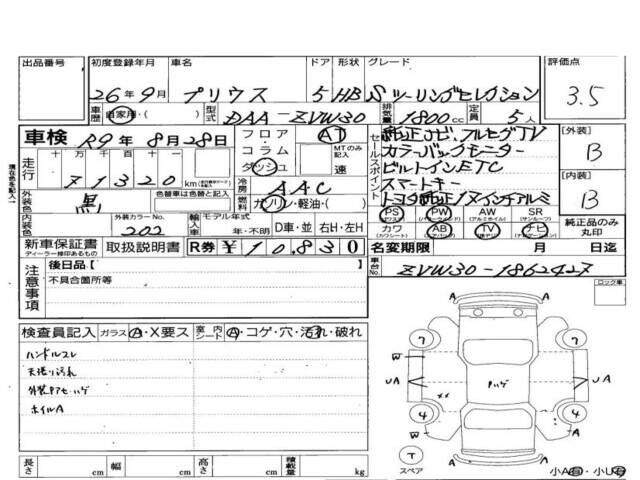 出品番号 初度登録年月 車名 ドア 形状 グレード 評価点
26年9月 プリウス 5 HB Sツーリングセレクション 3.5
車歴 自家用・( ) 型式 DAA-ZVW30 排気量 1800cc 定員 5人
車検 R9年8月28日 フロア AT セールスポイント 純正ナビ・フルセグTV [外装]
走行 十万 万 千 百 十 コラム MTのみ記入 カラーバックモニター B
71320km ダッシュ 速 ビルトインETC
現在色を記入
外装色 黒 色替車は色替と記入 冷房 AAC スマートキー [内装]
燃料 ガソリン・軽油・( ) トヨタ純正17インチアルミ B
内装色 外装カラーNo. 202 輸入車 モデル年式 年・不明 D車・並 右H・左H
PS PW AW SR
(パワーウィンドウ) (アルミホイル) (サンルーフ)
カワ AB TV ナビ 純正品のみ丸印
(カワシート) (エアバッグ)
新車保証書 取扱説明書 R券 ¥10,830 名変期限 月 日迄
ディーラー捺印あるもの
注意事項 後日品[ ] 車台No. ZVW30-1862427
不具合箇所等 ロック車
検査員記入 ガラス A・X要ス 室内シート A・コゲ・穴・汚れ・破れ
ハンドルスレ
天張り汚れ
ホイルA
A
7 7
W
UA Pハゲ UA
××
4 4
W W
A A
T
スペア A
長さ cm 幅 cm 高さ cm 積載量 kg 小A有・小U有